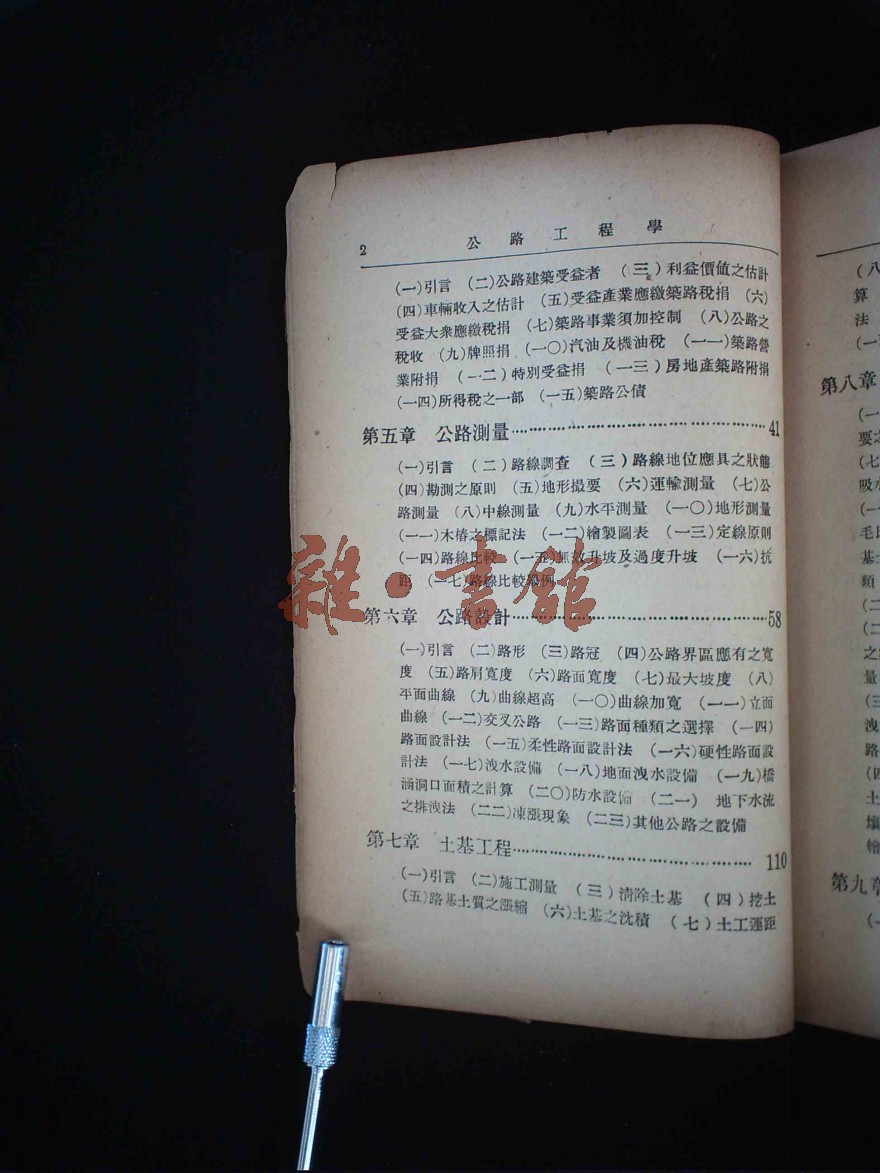 2 公路工程學
(一)引言 (二)公路建築受益者 (三)利益價值之估計
(四)車輛收入之估計 (五)受益產業應繳築路稅捐 (六)
受益大衆應繳稅捐 (七)築路事業須加控制 (八)公路之
稅收 (九)牌照捐 (一〇)汽油及機油稅 (一一)築路營
業附捐 (一二)特別受益捐 (一三)房地產築路附捐
(一四)所得稅之一部 (一五)築路公債
第五章 公路測量 41
(一)引言 (二)路線調查 (三)路線地位應具之狀態
(四)勘測之原則 (五)地形撮要 (六)運輸測量 (七)公
路測量 (八)中線測量 (九)水平測量 (一〇)地形測量
(一一)木樁之標記法 (一二)繪製圖表 (一三)定線原則
(一四)路線比較 (一五)無效升坡及過度升坡 (一六)抗
距 (一七)路線比較舉例
第六章 公路設計 58
(一)引言 (二)路形 (三)路冠 (四)公路界區應有之寬
度 (五)路肩寬度 (六)路面寬度 (七)最大坡度 (八)
平面曲線 (九)曲線超高 (一〇)曲線加寬 (一一)立面
曲線 (一二)交叉公路 (一三)路面種類之選擇 (一四)
路面設計法 (一五)柔性路面設計法 (一六)硬性路面設
計法 (一七)洩水設備 (一八)地面洩水設備 (一九)橋
涵洞口面積之計算 (二〇)防水設備 (二一)地下水流
之排洩法 (二二)凍漲現象 (二三)其他公路之設備
第七章 土基工程 110
(一)引言 (二)施工測量 (三)清除土基 (四)挖土
(五)路基土質之漲縮 (六)土基之沈積 (七)土工運距
雜·書館
(八
算
法
第八章
要之
(七
吸水
基
類
(二
(二
之
量
(三
洩
路
(四
土
壤
繪
第九章